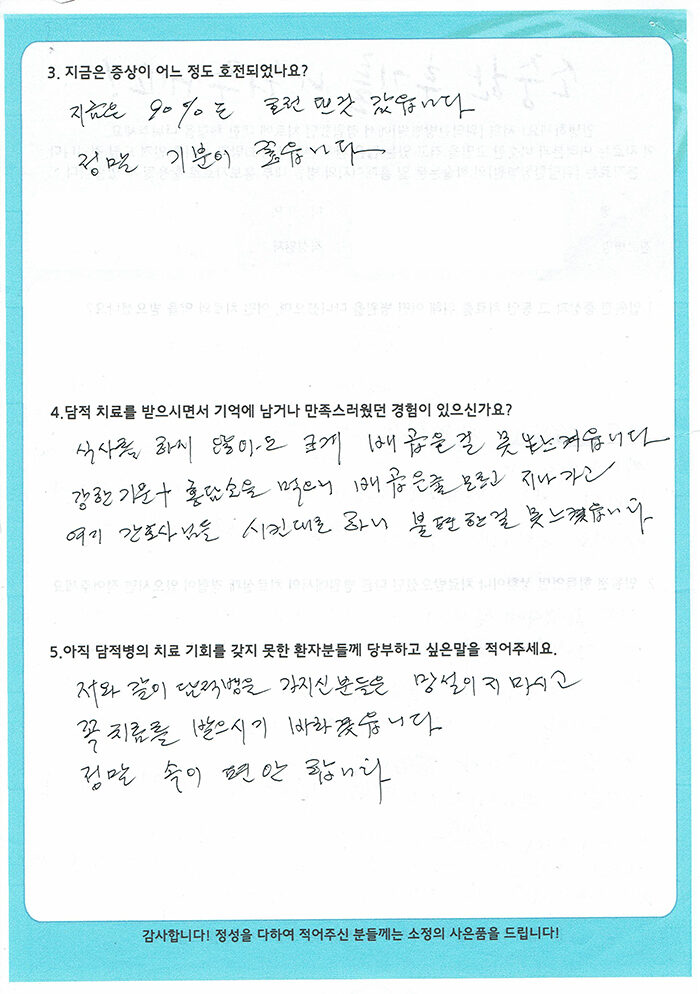 3. 지금은 증상이 어느 정도 호전되었나요?
지금은 90%는 호전 된것 같습니다
정말 기분이 좋습니다
4.담적 치료를 받으시면서 기억에 남거나 만족스러웠던 경험이 있으신가요?
식사를 하지 않아도 크게 배 곺은걸 못 느껴습니다
강한기운+ 홍담소을 먹으니 배 곺은줄 모르고 지나가고
여기 간호사님들 시킨대로 하니 불편한걸 못느꼈습니다
5.아직 담적병의 치료 기회를 갖지 못한 환자분들께 당부하고 싶은말을 적어주세요.
저와 같이 담적병은 가지신분들은 망설이지 마시고
꼭 치료를 받으시기 바라겠습니다
정말 속이 편안 합니다
감사합니다! 정성을 다하여 적어주신 분들께는 소정의 사은품을 드립니다!